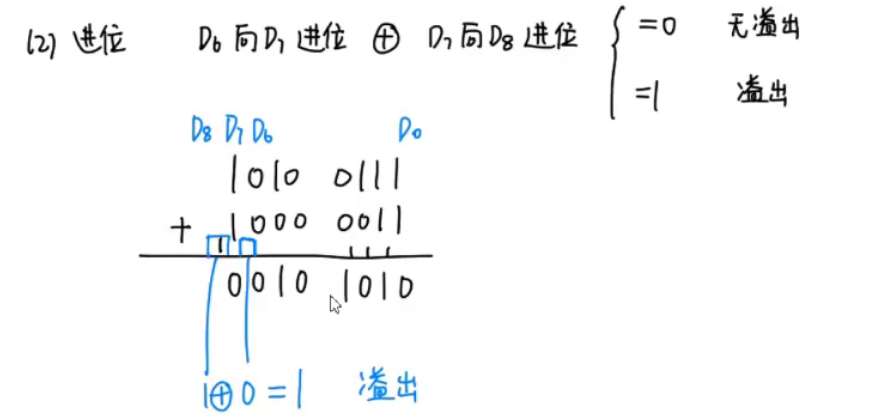 (2) 进位 D6向D7进位 ⊕ D7向D8进位 { =0 无溢出
=1 溢出
D8 D7 D6 D0
1010 0111
+ 1000 0011
1 1 1 1
0010 1010
1⊕0=1 溢出